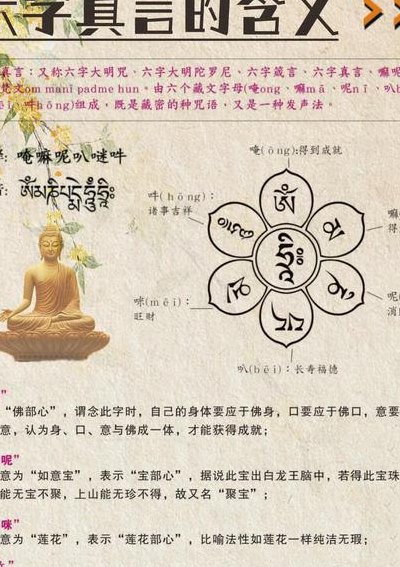 六字真言的含义 >>
真言：又称六字大明咒、六字大明陀罗尼、六字箴言、六字真言、嘛呢
梵文om manī padme hun。由六个藏文字母(唵ong、嘛mā、呢nī、叭b
ēi、吽hōng)组成，既是藏密的种咒语、又是一种发声法。
：唵嘛呢叭谜吽
：ཨོཾ་མ་ཎི་པདྨེ་ཧཱུྃ་ཧྲཱིཿ
唵(ōng):得到成就
吽(hōng):
诸事吉祥
嘛
得
咪(mēi):
旺财
呢
消
叭(bēi):长寿福德
”
“佛部心”，谓念此字时，自己的身体要应于佛身，口要应于佛口，意要
意，认为身、口、意与佛成一体，才能获得成就；
呢”
意为“如意宝”，表示“宝部心”，据说此宝出白龙王脑中，若得此宝珠
能无宝不聚，上山能无珍不得，故又名“聚宝”；
咪”
意为“莲花”，表示“莲花部心”，比喻法性如莲花一样纯洁无瑕；